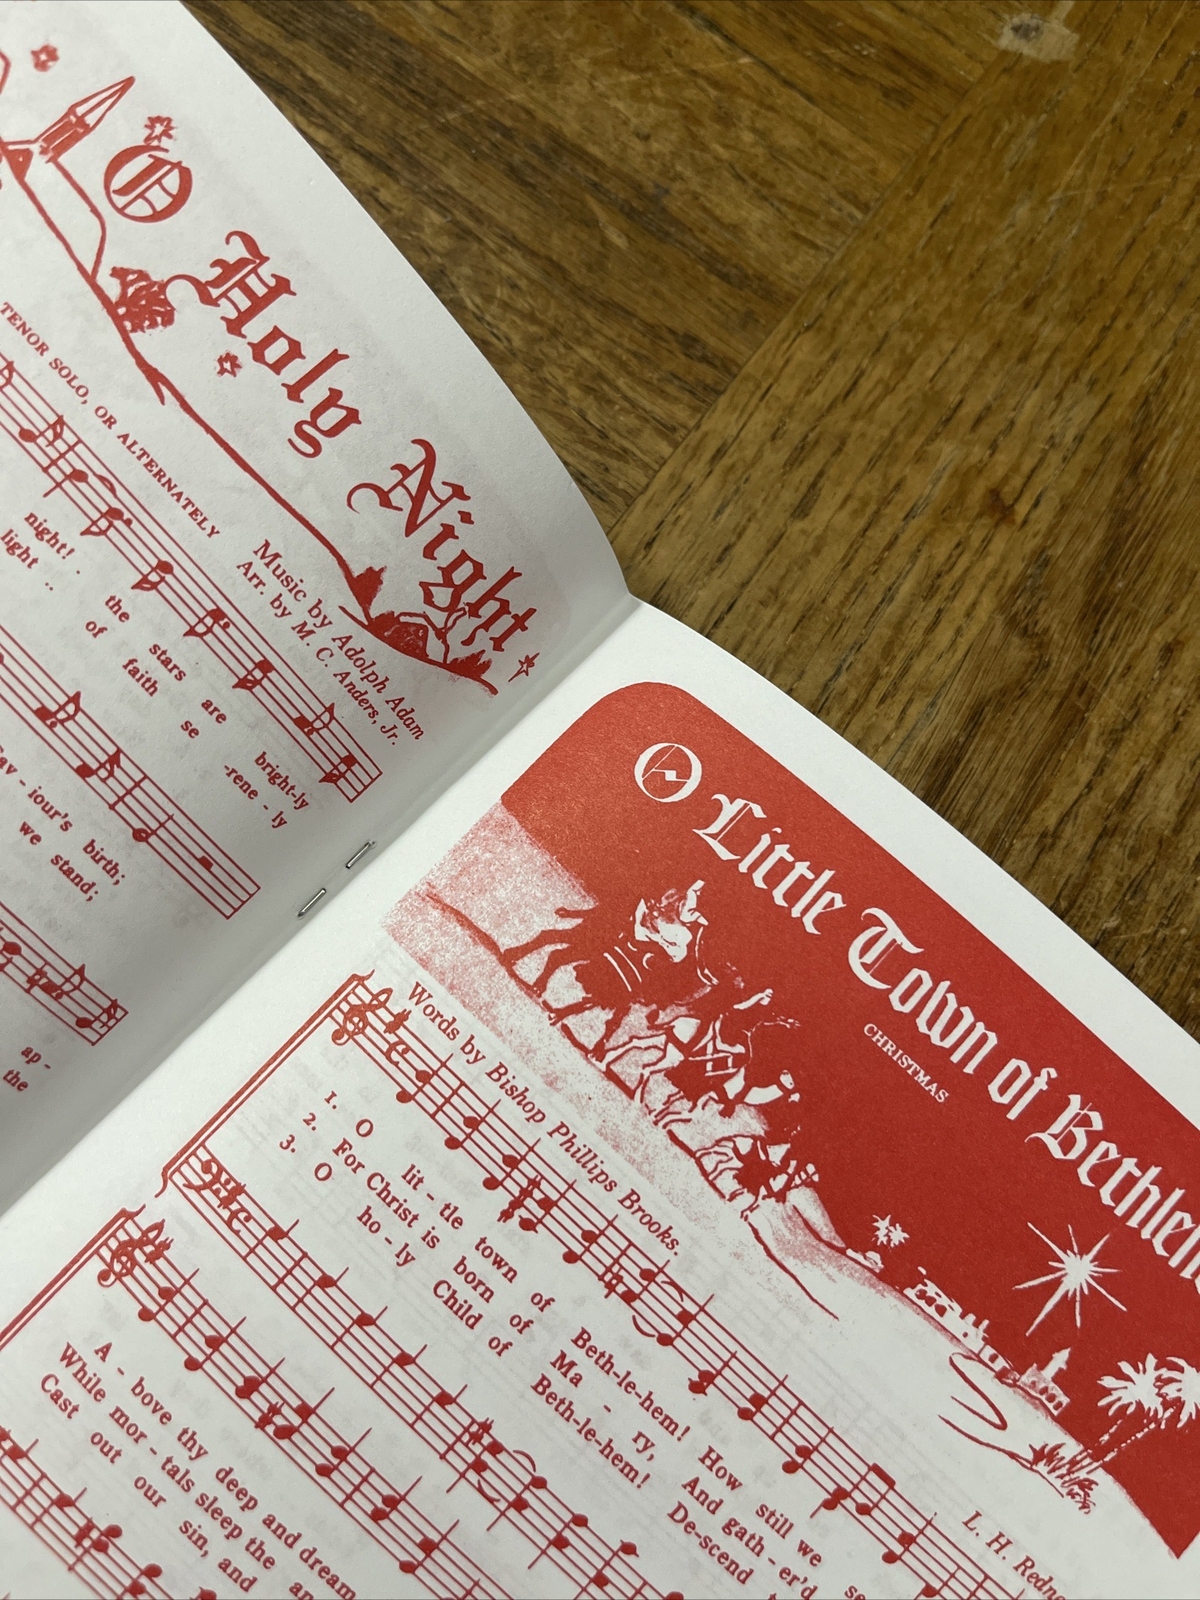 O Holy Night
TENOR SOLO, OR ALTERNATELY
Music by Adolph Adam
Arr. by M. C. Anders, Jr.
night! . the stars are bright-ly
light .. of faith se -rene - ly
iour's birth;
we stand;
ap -
the
O Little Town of
CHRISTMAS
Words by Bishop Phillips Brooks.
L. H.
1. O lit - tle town of Beth-le-hem! How still we
2. For Christ is born of Ma - ry, And gath - er'd
3. O ho - ly Child of Beth-le-hem! De-scend
A - bove thy deep and dream
While mor - tals sleep the
Cast out our sin, and